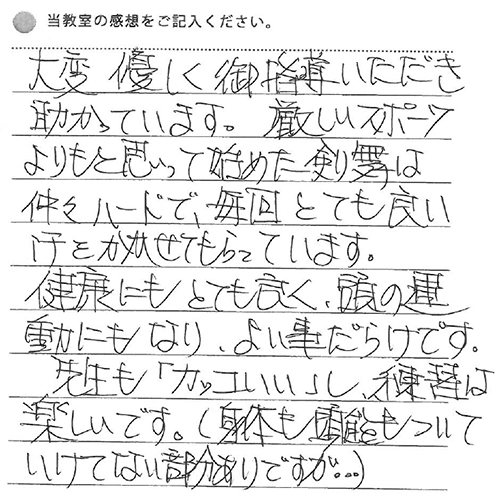 当教室の感想をご記入ください。
大変 優しく 御指導いただき
助かっています。 厳しいスポーツ
よりもと思って始めた剣舞は
仲々ハードで、毎回 とても良い
汗をかかせてもらっています。
健康にも とても良く、頭の運
動にもなり、よい事だらけです。
先生も「カッコいい」し、練習は
楽しいです。(身体も頭脳もついて
いけてない部分ありですが…)